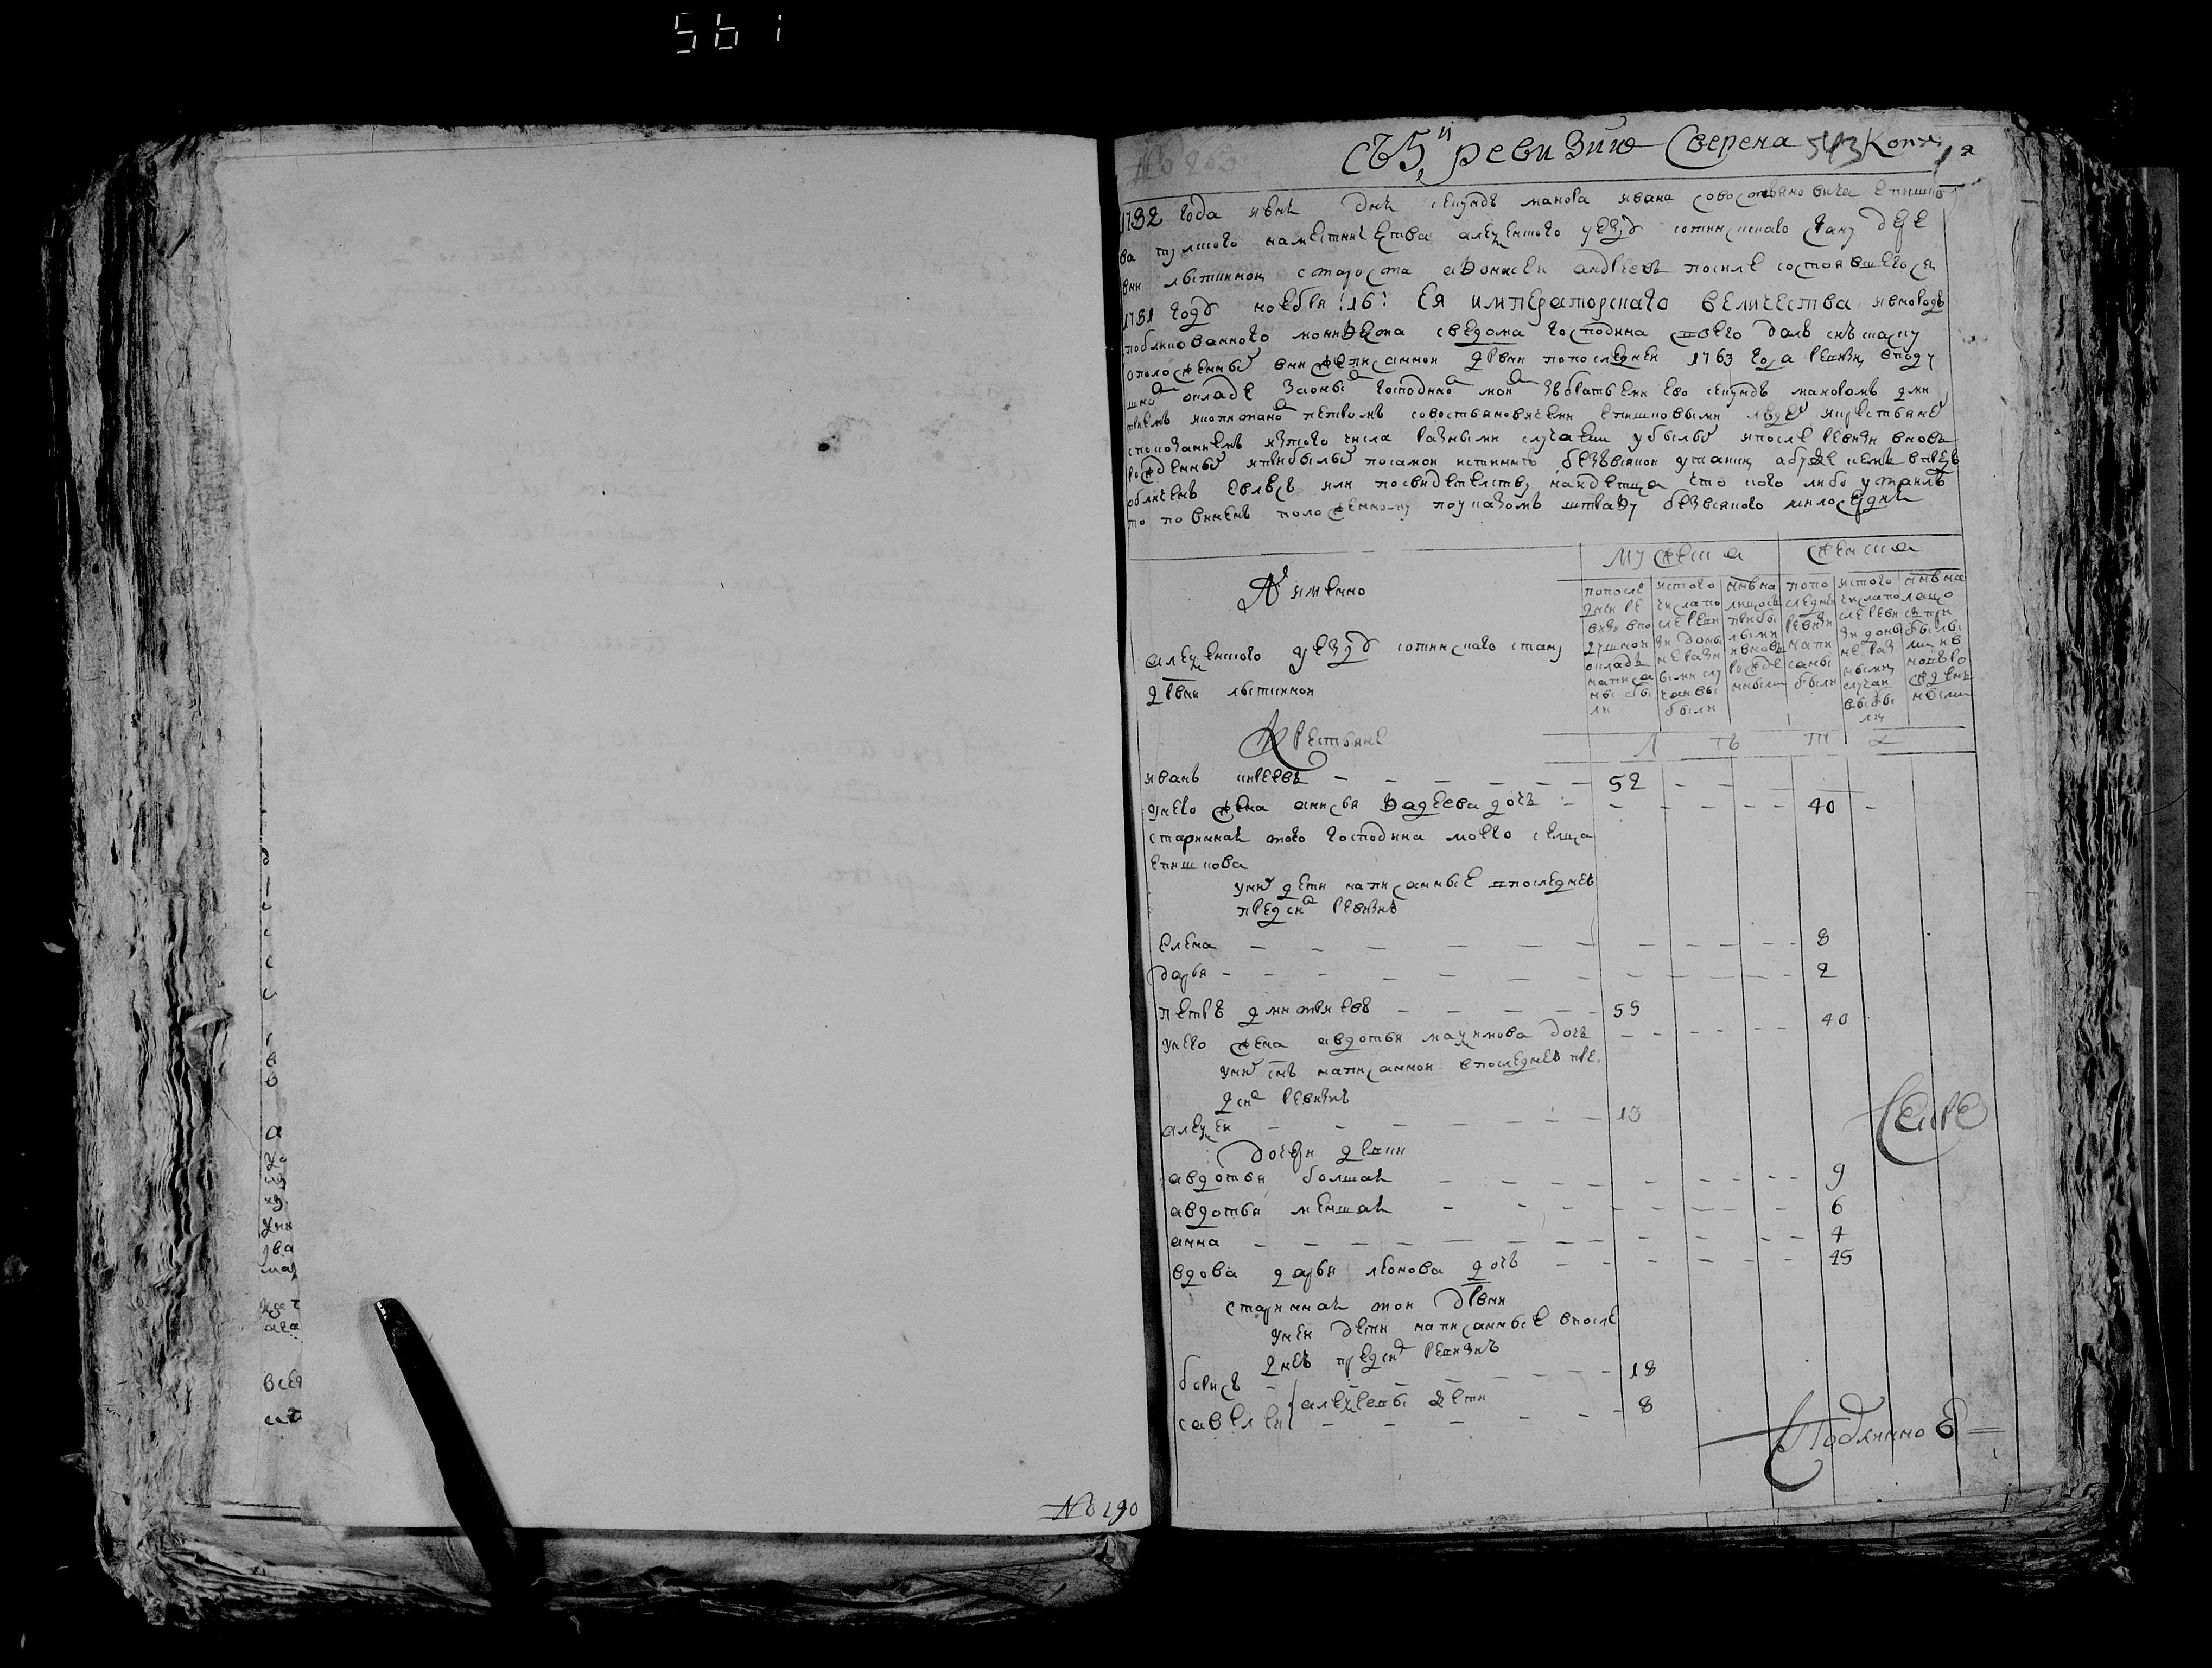 561
съ 5й ревизию Сверена 513 Копия
1782 года июня дня секундъ маиора ивана совостьяновича Епишко
ва тулского наместничества алексенского уезду сотинского стану дере
вни лыткиной староста афонасеи андреевъ посиле состоявшегося
1781 году ноебря :16: Ея императорского величества ивнородъ
публикованного монифеста сведома господина своего далъ сию скаску
оположенных внижеписанной двни попоследней 1763 года ревизии вподу
шной окладе заоным господиномъ моим збратьеми ево секундъ маиоромъ дми
триемъ икопитаномъ петромъ совостьяновичеми епишковыми людех икрестьянех
спокозаниемъ изтого числа разными случаеми убылых ипосле ревизи вновь
рожденных иприбылых посамой истинне безвсякой утаики абуде ичемъ впредь
обличенъ евлюсь или посвидетелству наидетца что кого либо утаилъ
то повиненъ положенному поуказомъ штрафу безвсякого милосердия
мужеска
женска
А имянно
попосле
дней ре
визи впо
душном
окладе
написа
ны бы
ли
истого
числа по
сле реви
зи доны
не разн
ыми слу
чаи вы
были
инына
лицо съ
прибы
лыми
ивновь
рожде
нными
попо
следней
ревизи
напи
саны
были
истого
числа по
сле реви
зи доны
не раз
ными
случаи
выбы
ли
инына
лицо
съ при
былы
ми ив
новь ро
жден
ными
алексенского уезду сотинского стану
двни лыткиной
Крестьяне
Л тъ т а
иванъ икреевъ 52
унего жена анисья фадеева дочь 40
старинная того господина моего селца
епишкова
уних дети написанные впоследнеъ
предсих ревизиъ
елена 8
дарья 2
петръ дмитриевъ 55
унего жена авдотья макимова дочь 40
уних снъ написанной впоследнеъ пре
дсих ревизиъ
алексеи 13
дочери девки
авдотья болшая 9
авдотья меншая 6
анна 4
вдова дарья леонова дочь 45
старинная той двни
унеи дети написанные впосле
днеъ предсих ревизиъ
борисъ 18
алексеевы дети
савелеи 8
Секре
Подлинно Е
№ 190